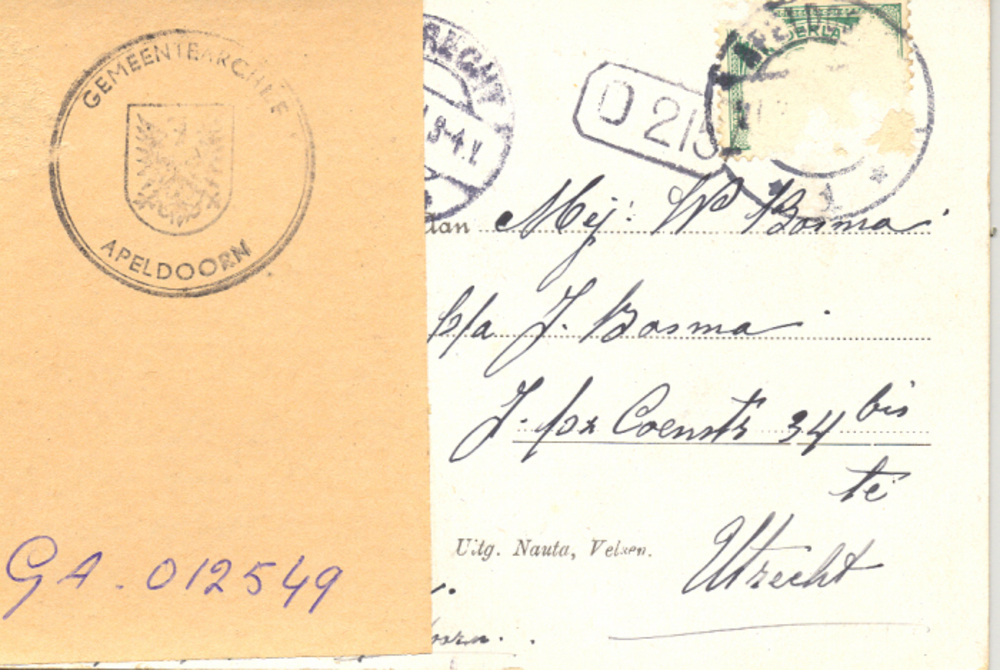 GEMEENTEARCHIEF
APELDOORN
GA. 012549
RECHT
8-4.
O 215
APELD
NEDERLA
1
aan Mej: W Bosma
p/a J. Bosma
J. pz Coenstr 34 bis
te
Utrecht
Uitg. Nauta, Velsen.
oorn.